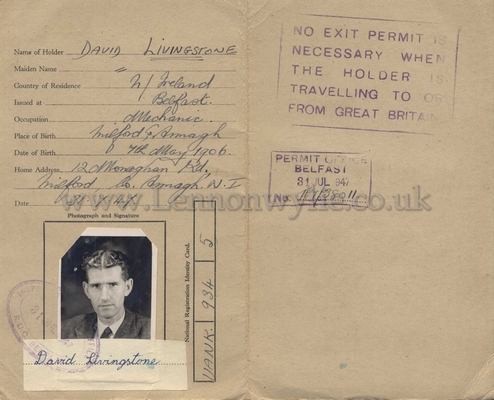 Name of Holder DAVID LIVINGSTONE
Maiden Name "
Country of Residence N/ Ireland
Issued at Belfast.
Occupation Mechanic.
Place of Birth Milford Armagh
Date of Birth 7th May 1906.
Home Address 12 Monaghan Rd,
Milford, Co. Armagh. N.I
Date
www.Lennonwylie.co.uk
Photograph and Signature
David Livingstone
National Registration Identity Card.
UANK. 934 5
NO EXIT PERMIT IS
NECESSARY WHEN
THE HOLDER IS
TRAVELLING TO OR
FROM GREAT BRITAIN
PERMIT OFFICE
BELFAST
31 JUL 1947
No.